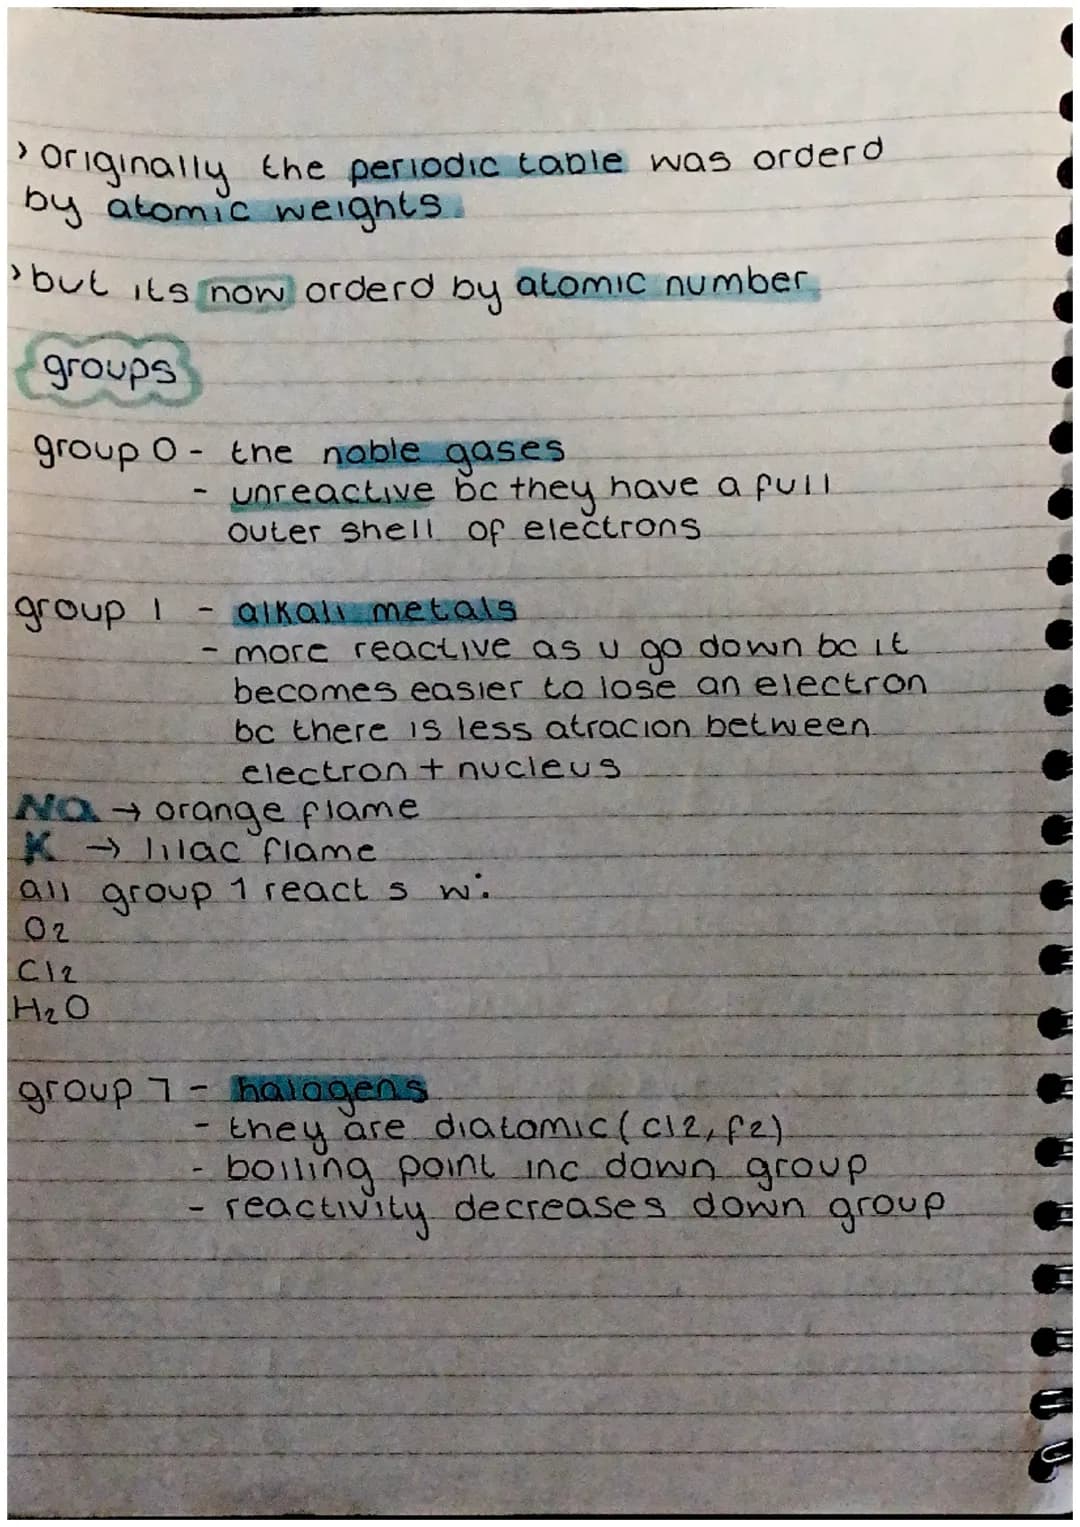 > Originally the periodic table was orderd
by atomic weights.
> but its now orderd by atomic number.
groups
group 0 - the noble gases
- unreactive bc they have a full
outer shell of electrons
group 1 - alkali metals
- more reactive as u go down bc it
becomes easier to lose an electron
bc there is less atracion between
electron + nucleus
Na → orange flame
K → lilac flame
all group 1 react s w:
O2
Cl2
H2O
group 7 - halogens
- they are diatomic (cl2, f2)
- boiling point inc down group
- reactivity decreases down group